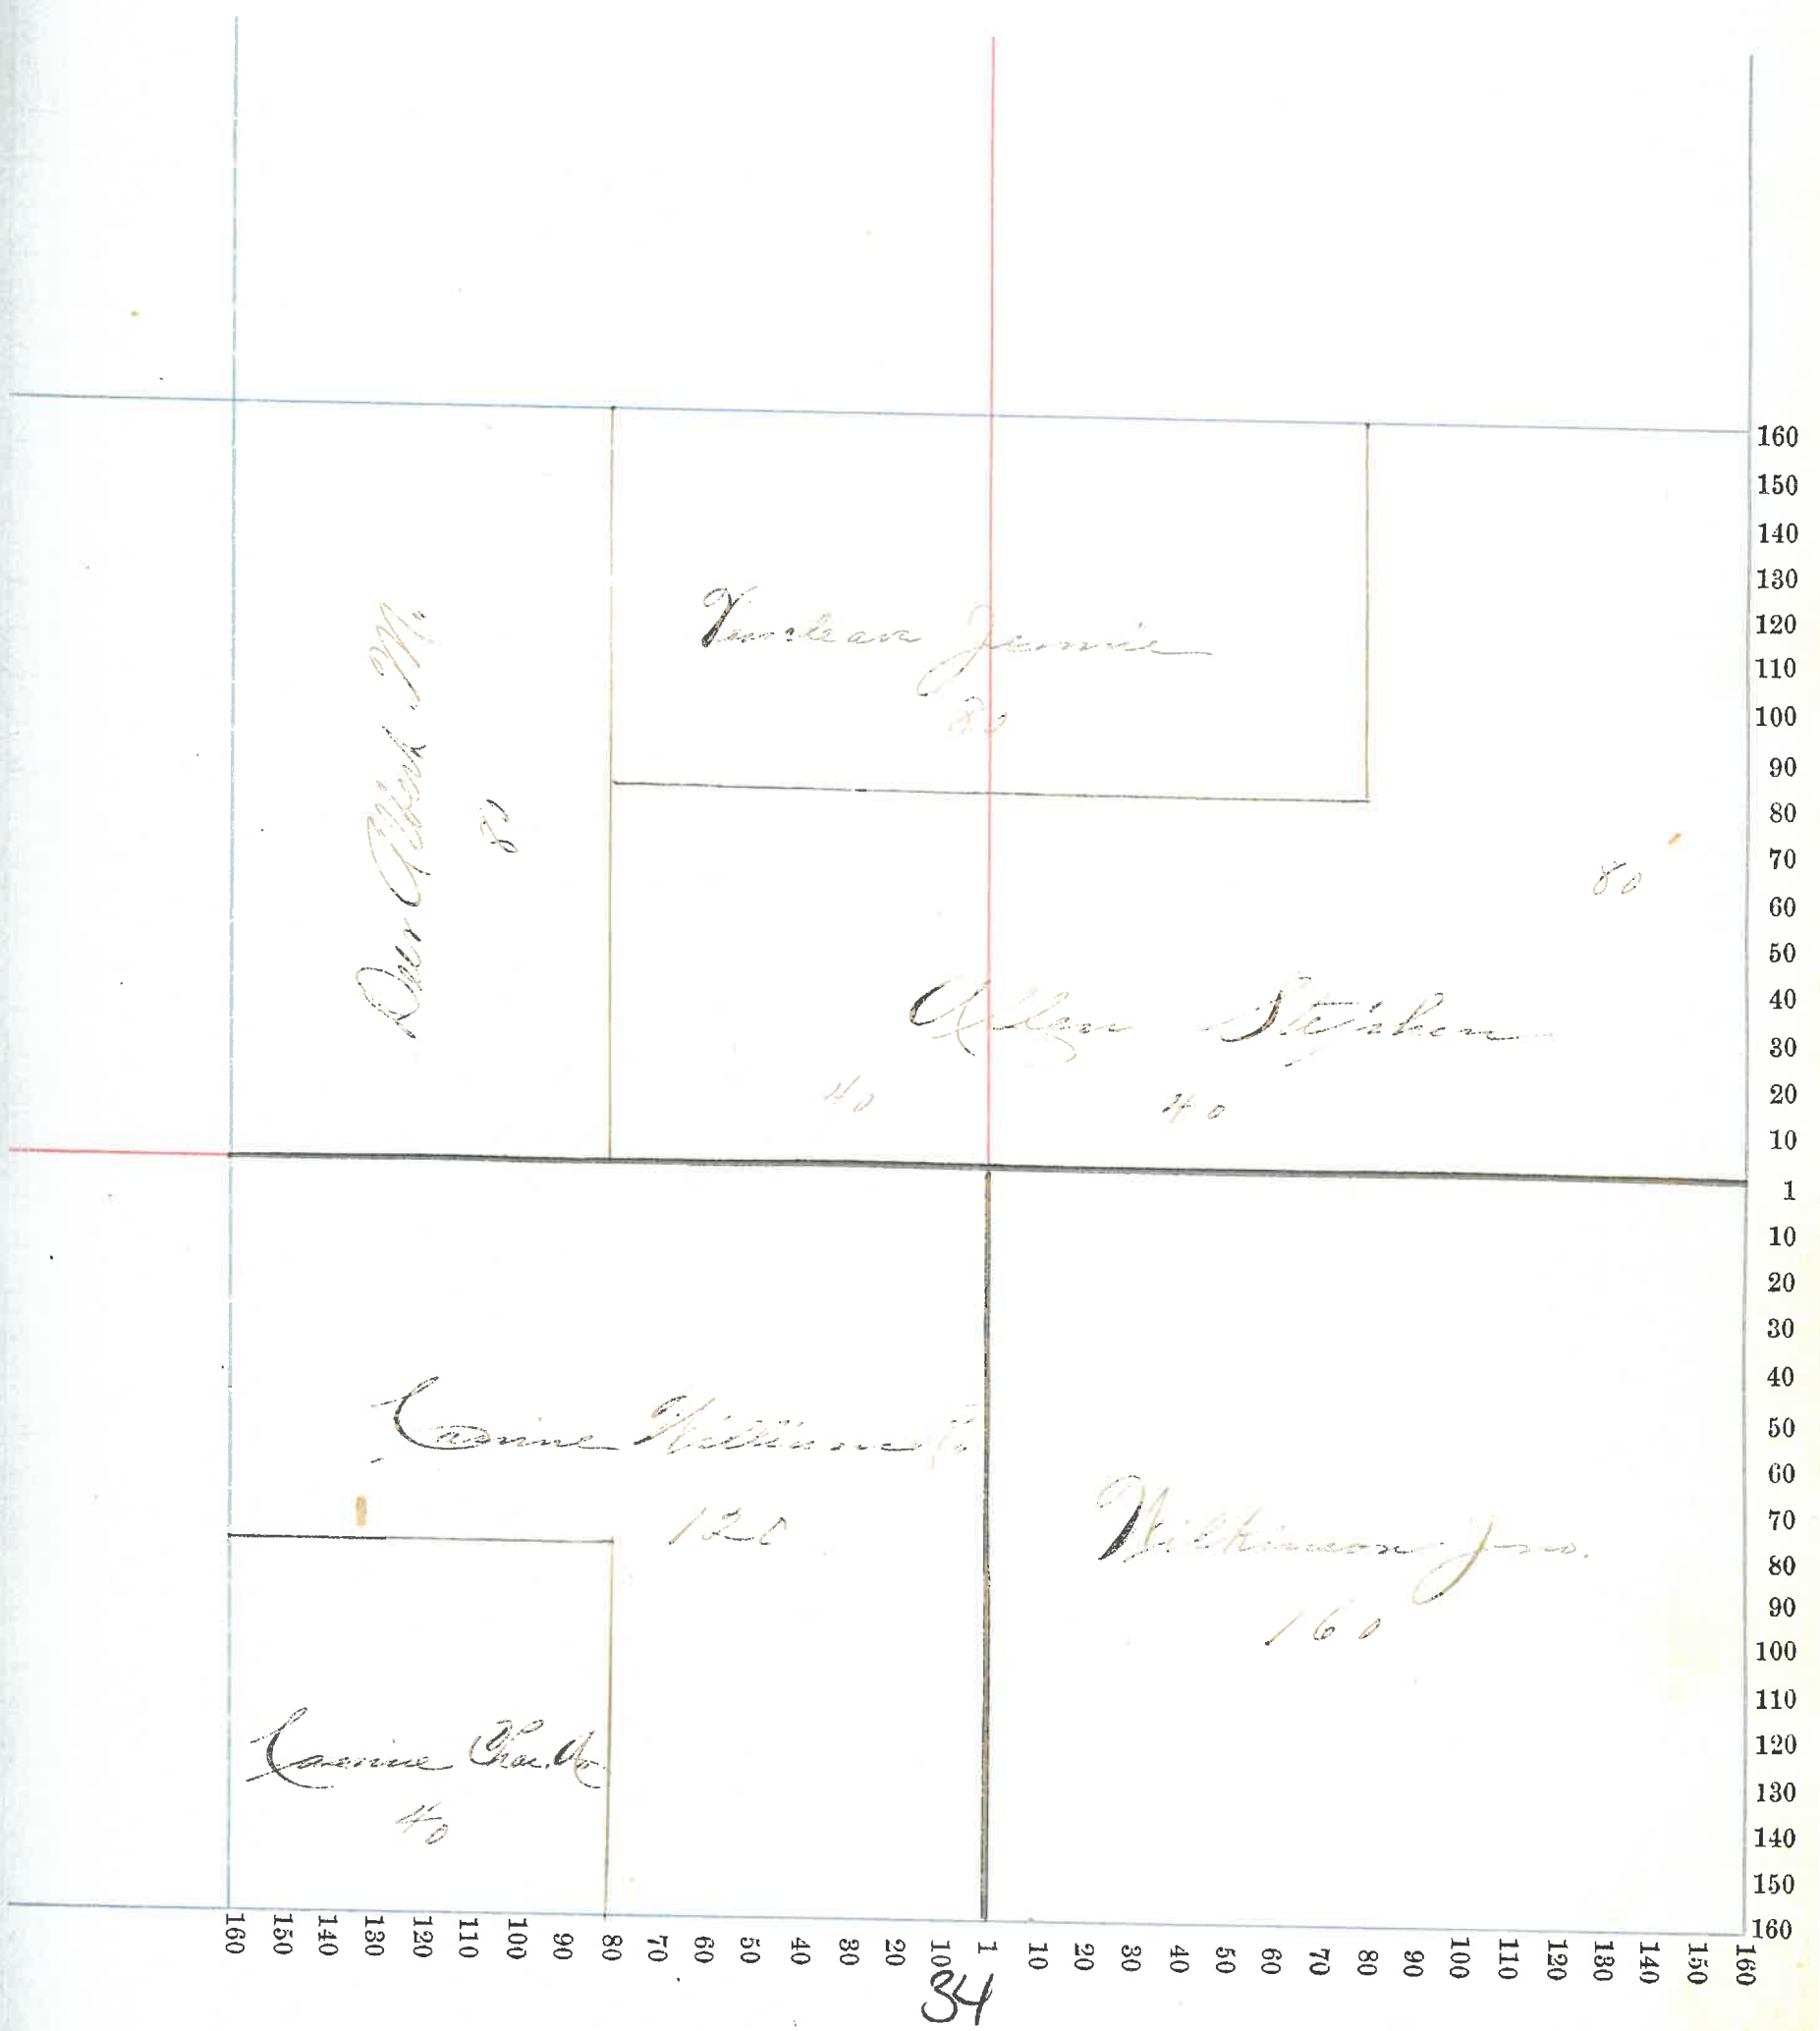 160
150
140
130
120
110
100
90
80
70
60
50
40
30
20
10
1
10
20
30
40
50
60
70
80
90
100
110
120
130
140
150
160
Jennie
80
M.
80
80
Allen Stephen
40 40
Canine William
120
Wilkinson Jno.
160
Canine Chas.
40
160 150 140 130 120 110 100 90 80 70 60 50 40 30 20 10 1 10 20 30 40 50 60 70 80 90 100 110 120 130 140 150 160
34